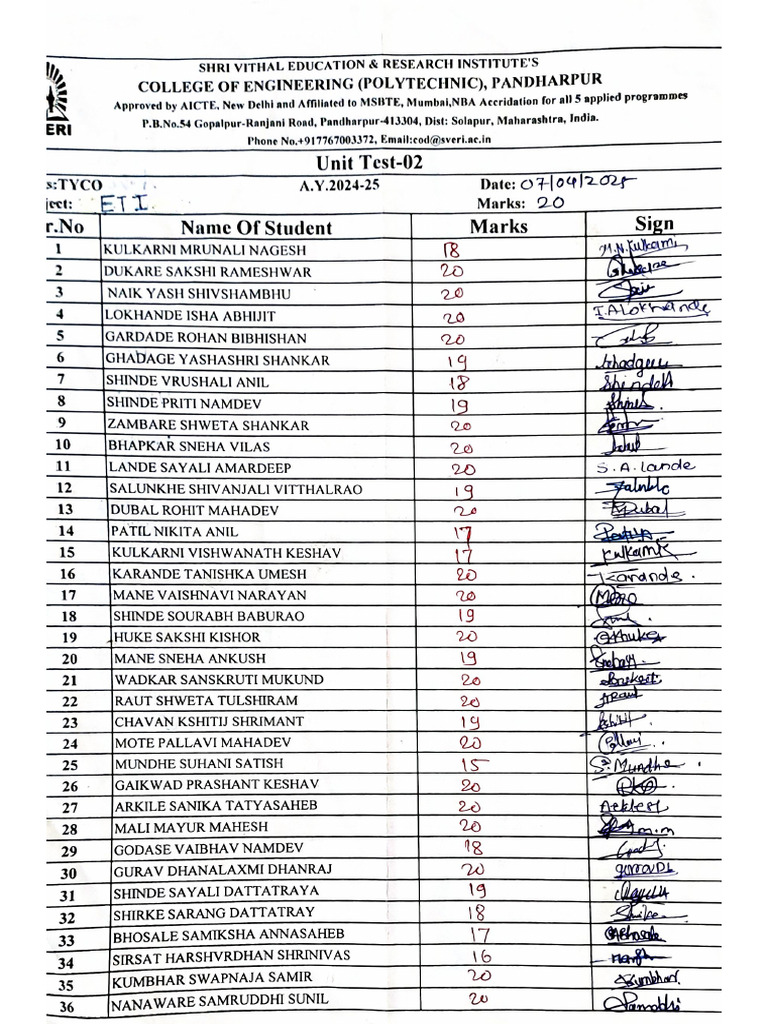 SHRI VITHAL EDUCATION & RESEARCH INSTITUTE'S
COLLEGE OF ENGINEERING (POLYTECHNIC), PANDHARPUR
Approved by AICTE, New Delhi and Affiliated to MSBTE, Mumbai,NBA Accridation for all 5 applied programmes
P.B.No.54 Gopalpur-Ranjani Road, Pandharpur-413304, Dist: Solapur, Maharashtra, India.
ERI
Phone No.+917767003372, Email:cod@sveri.ac.in
Unit Test-02
s:TYCO A.Y.2024-25 Date: 07/04/2025
ject: ETI Marks: 20
r.No Name Of Student Marks Sign
1 KULKARNI MRUNALI NAGESH 18 M.N.Kulkarni
2 DUKARE SAKSHI RAMESHWAR 20
3 NAIK YASH SHIVSHAMBHU 20
4 LOKHANDE ISHA ABHIJIT 20 I.A.Lokhande
5 GARDADE ROHAN BIBHISHAN 20
6 GHADAGE YASHASHRI SHANKAR 19
7 SHINDE VRUSHALI ANIL 18
8 SHINDE PRITI NAMDEV 19
9 ZAMBARE SHWETA SHANKAR 20
10 BHAPKAR SNEHA VILAS 20
11 LANDE SAYALI AMARDEEP 20 S.A.lande
12 SALUNKHE SHIVANJALI VITTHALRAO 19
13 DUBAL ROHIT MAHADEV 20
14 PATIL NIKITA ANIL 17
15 KULKARNI VISHWANATH KESHAV 17
16 KARANDE TANISHKA UMESH 20 Karande.
17 MANE VAISHNAVI NARAYAN 20
18 SHINDE SOURABH BABURAO 19
19 HUKE SAKSHI KISHOR 20
20 MANE SNEHA ANKUSH 19
21 WADKAR SANSKRUTI MUKUND 20
22 RAUT SHWETA TULSHIRAM 20
23 CHAVAN KSHITIJ SHRIMANT 19
24 MOTE PALLAVI MAHADEV 20
25 MUNDHE SUHANI SATISH 15 S.Mundhe
26 GAIKWAD PRASHANT KESHAV 20
27 ARKILE SANIKA TATYASAHEB 20
28 MALI MAYUR MAHESH 20
29 GODASE VAIBHAV NAMDEV 18
30 GURAV DHANALAXMI DHANRAJ 20
31 SHINDE SAYALI DATTATRAYA 19
32 SHIRKE SARANG DATTATRAY 18
33 BHOSALE SAMIKSHA ANNASAHEB 17
34 SIRSAT HARSHVRDHAN SHRINIVAS 16
35 KUMBHAR SWAPNAJA SAMIR 20
36 NANAWARE SAMRUDDHI SUNIL 20